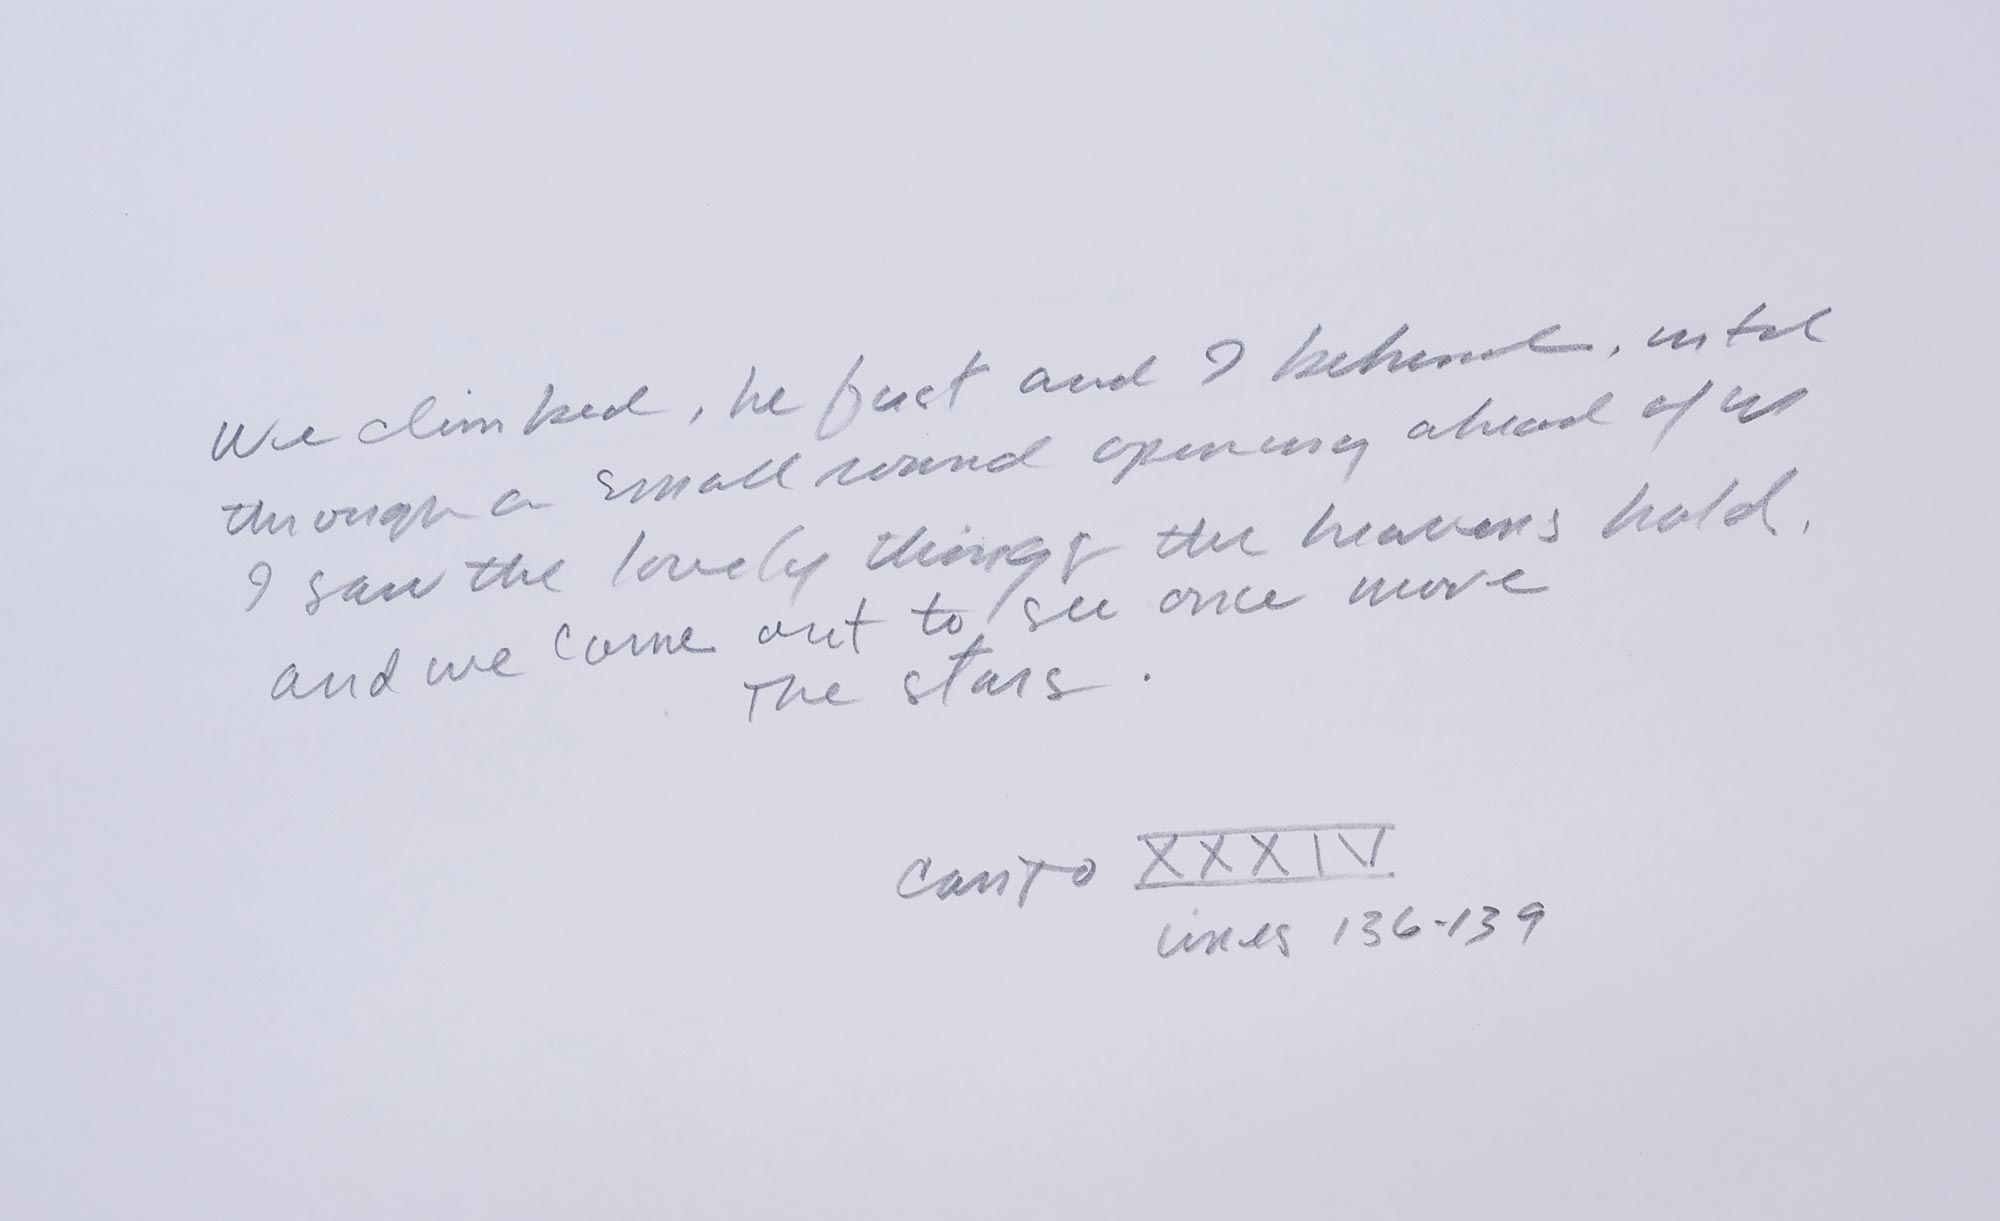 We climbed, he first and I behind, until
through a small round opening ahead of us
I saw the lovely things the heavens hold,
and we came out to see once more
The stars.
Canto XXXIV
lines 136-139